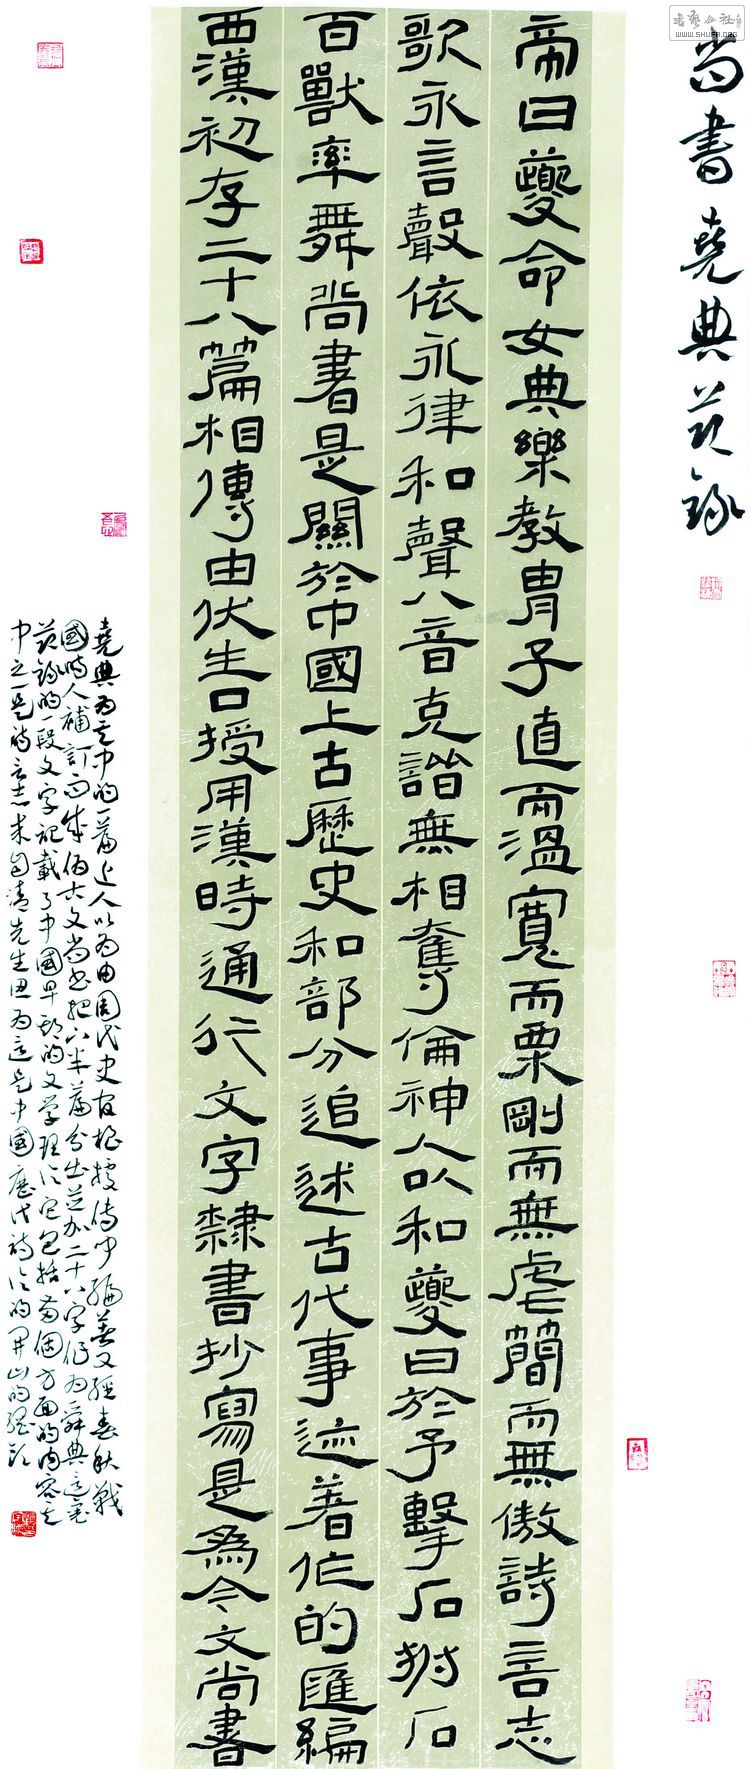 书艺公社
WWW.SHUFA.ORG
尚書堯典节錄
帝曰夔命女典樂教胄子直而溫寬而栗剛而無虐簡而無傲詩言志
歌永言聲依永律和聲八音克諧無相奪倫神人以和夔曰於予擊石拊石
百獸率舞尚書是關於中國上古歷史和部分追述古代事迹著作的匯編
西漢初存二十八篇相傳由伏生口授用漢時通行文字隸書抄寫是為今文尚書
堯典为其中的一篇近人以为由周代史官根據传闻编著又經春秋戰
國時人補訂而成伪古文尚书把下半篇分出並加二十八字作为舜典這是
节錄的一段文字記載了中國早期的文学理论它包括兩個方面的内容其
中之一是诗言志朱自清先生为這是中國歷代诗论的开山的纲领